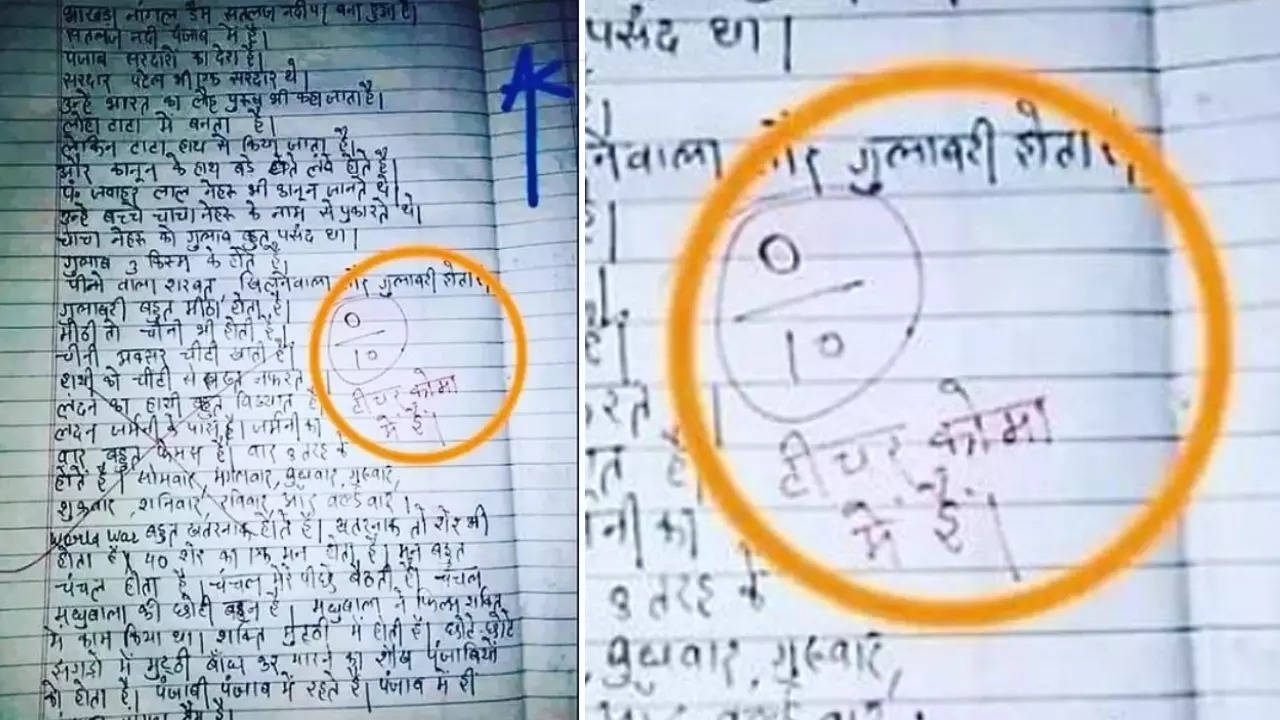 भाखड़ा नांगल डैम सतलज नदी पर बना हुआ है।
सतलज नदी पंजाब में है।
पंजाब सरदारों का देश है।
सरदार पटेल भी एक सरदार थे।
उन्हें भारत का लौह पुरुष भी कहा जाता है।
लोहा टाटा में बनता है।
लेकिन टाटा हाथ से किया जाता है।
और कानून के हाथ बडे होते लंबे होते है।
पं. जवाहर लाल नेहरू भी कानून जानते थे।
उन्हें बच्चे चाचा नेहरू के नाम से पुकारते थे।
चाचा नेहरू को गुलाब बहुत पसंद था।
गुलाब 3 किस्म के होते है।
पीने वाला शरबत, खिलनेवाला गुलाबरी होता
गुलाबरी बहुत मीठा होता है।
मीठी तो चीनी भी होती है।
चीनी अक्सर चींटी खाती है।
हाथी को चींटी से बहुत नफरत
लंदन का हाथी बहुत विख्यात है
लंदन जर्मनी के पास है। जर्मनी का
वार बहुत फेमस है। वार 8 तरह के
होते है। सोमवार, मंगलवार, बुधवार, गुरुवार,
शुक्रवार, शनिवार, रविवार और वर्ल्ड वार।
World War बहुत खतरनाक होते है। खतरनाक तो शेर भी
होता है। 40 शेर का एक मन होता है। मन बहुत
चंचल होता है। चंचल मेरे पीछे बैठती है। चंचल
मधुबाला की छोटी बहन है। मधुबाला ने फिल्म शक्ति
मे काम किया था। शक्ति मुट्ठी में होती है। छोटे-छोटे
झगड़ो में मुट्ठी बाँध कर मारने का शौख पंजाबियों
को होता है। पंजाबी पंजाब में रहते है। पंजाब में ही
डैम है।
0
10
टीचर कोमा
में है।
पसंद था।
नेवाला गुलाबरी होता
0
10
टीचर कोमा
में है।
नी का
8 तरह के
बुधवार, गुरुवार,